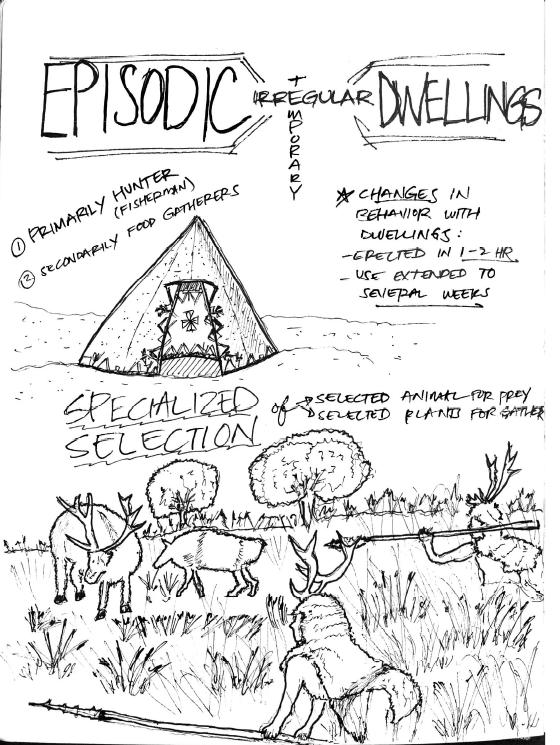 EPISODIC IRREGULAR DWELLINGS
TEMPORARY
① PRIMARILY HUNTER
(FISHERMAN)
② SECONDARILY FOOD GATHERERS
* CHANGES IN
BEHAVIOR WITH
DWELLINGS:
- ERECTED IN 1-2 HR.
- USE EXTENDED TO
SEVERAL WEEKS
SPECIALIZED
SELECTION
of → SELECTED ANIMAL FOR PREY
→ SELECTED PLANTS FOR GATHER